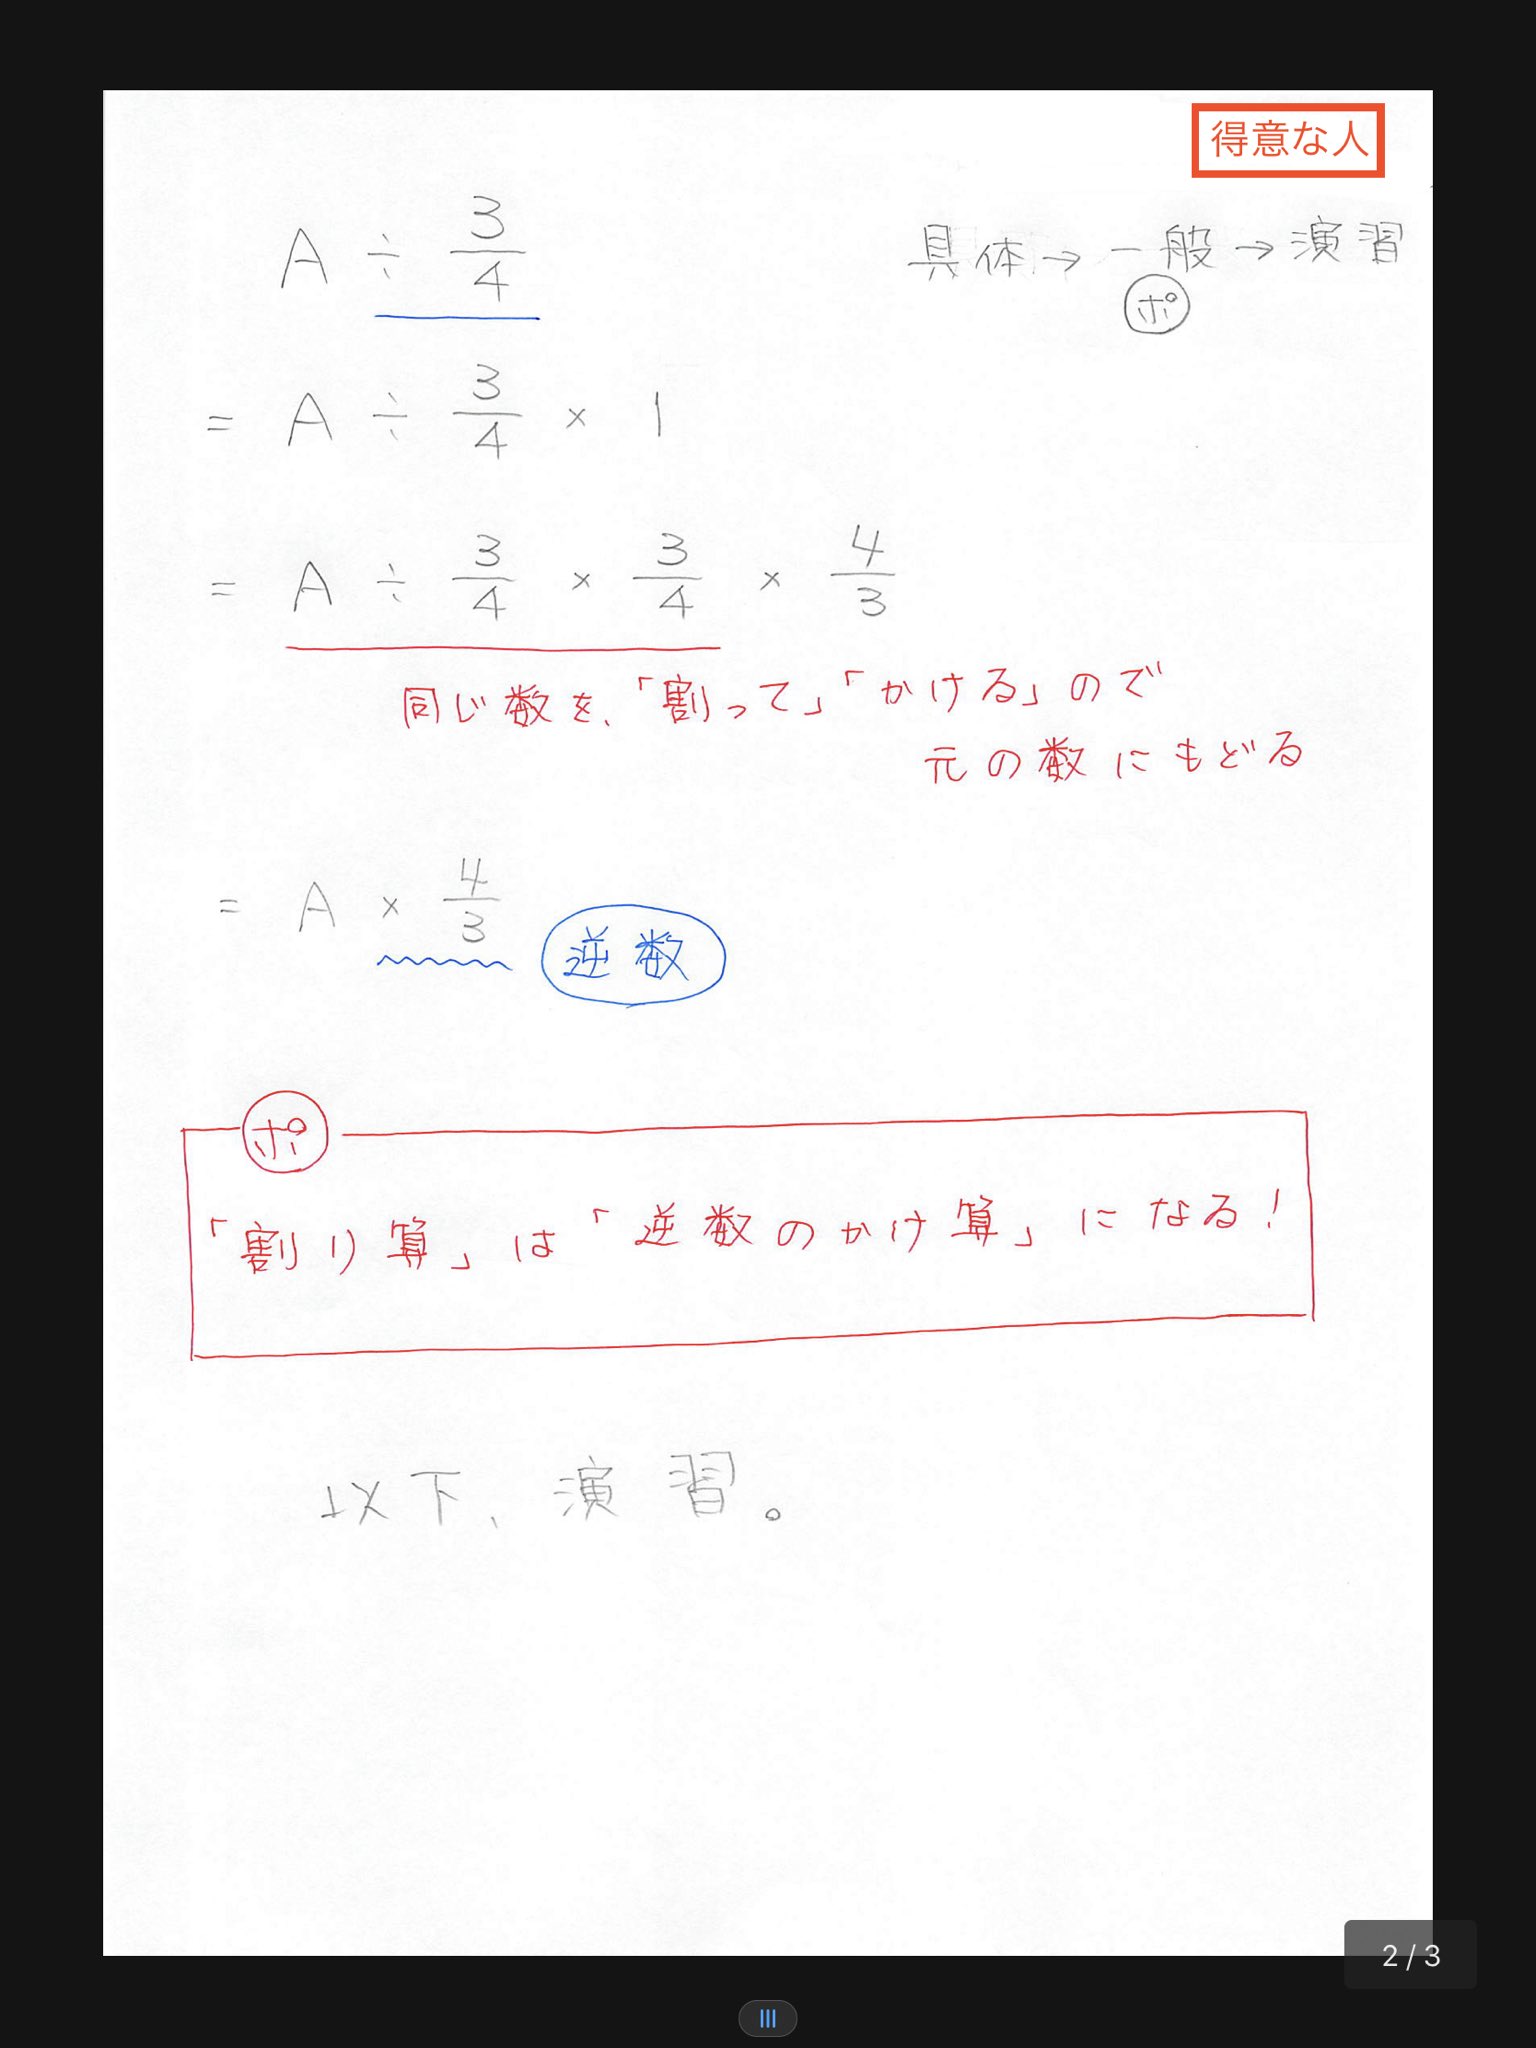 得意な人
具体→一般→演習
ポ
A ÷ 3/4
= A ÷ 3/4 × 1
= A ÷ 3/4 × 3/4 × 4/3
同じ数を、「割って」「かける」ので
元の数にもどる
= A × 4/3
逆数
ポ
「割り算」は「逆数のかけ算」になる!
以下、演習。
2 / 3